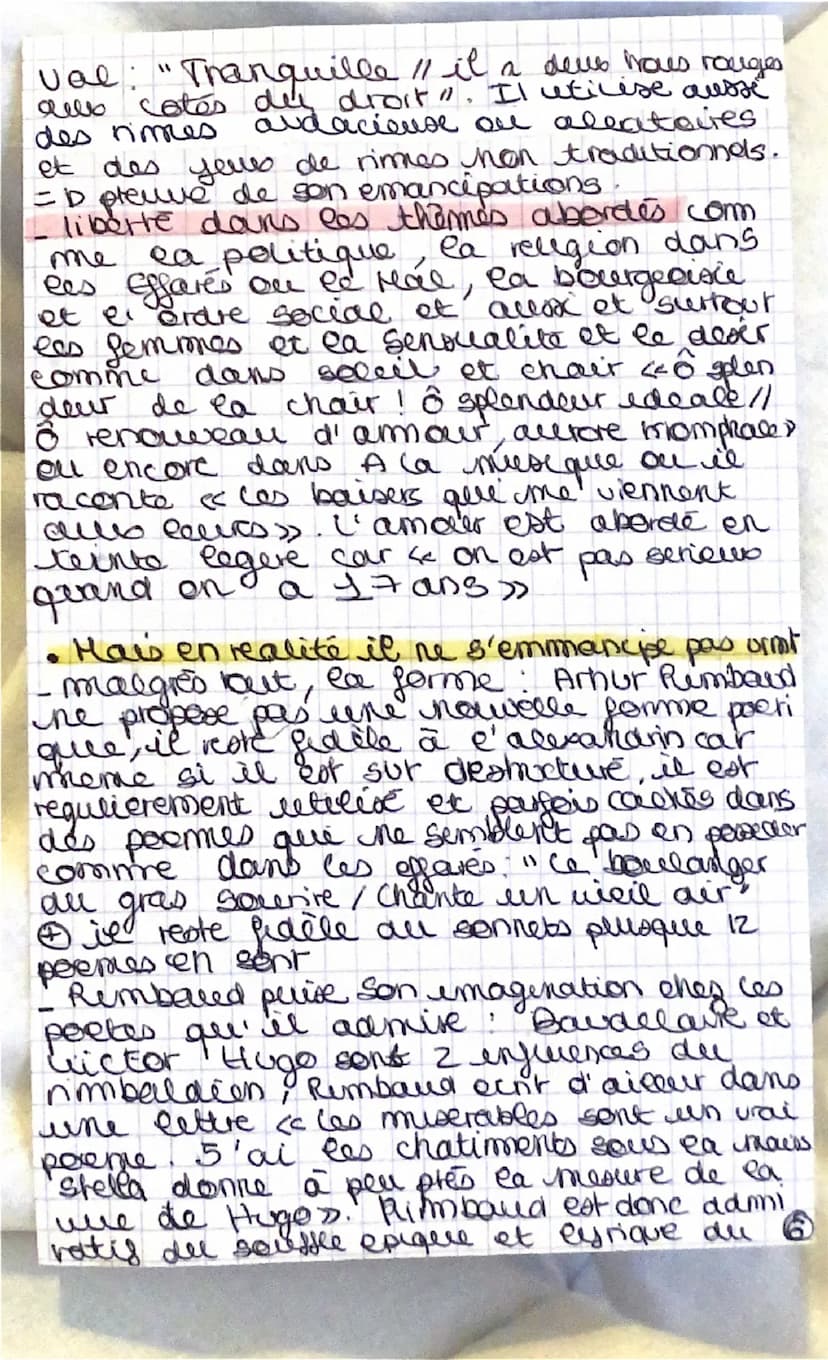 val : "Tranquille // il a deux trous rouges
aux cotés du droit". Il utilise aussi
des rimes audacieuse ou aleatoires
et des jeux de rimes non traditionnels.
=D preuve de son emancipations.
- liberté dans les thèmes abordés com
me la politique, la religion dans
les Effarés ou le Mal, la bourgeoisie
et l'ordre social et aussi et surtout
les femmes et la sensualité et le desir
comme dans soleil et chair «Ô splen
deur de la chair ! ô splendeur ideale //
Ô renouveau d'amour, aurore triomphale»
ou encore dans A la musique ou il
raconte « les baisers qui me viennent
aux levres». L'amour est abordé en
teinte legere car « on est pas serieux
quand on a 17 ans »
• Mais en realité il ne s'emmancipe pas vrmt
- malgrés tout, la forme : Arhur Rimbaud
ne propose pas une nouvelle forme poeti
que, il reste fidèle à l'alexandrin car
meme si il est sur destructuré, il est
regulierement utilisé et parfois cachés dans
des poemes qui ne semblent pas en posseder
comme dans les effarés: "Le boulanger
au gras sourire / Chante un vieil air"
⊕ il reste fidèle au sonnets puisque 12
poemes en sont
- Rimbaud puise son imagination chez les
poetes qu'il admire : Baudelaire et
Victor Hugo sont 2 influences du
rimbaldien, Rimbaud ecrit d'ailleur dans
une lettre « les miserables sont un vrai
poeme. J'ai les chatiments sous la main
Stella donne à peu près la mesure de la
vue de Hugo». Rimbaud est donc admi
ratif du souffle epique et lyrique du 6